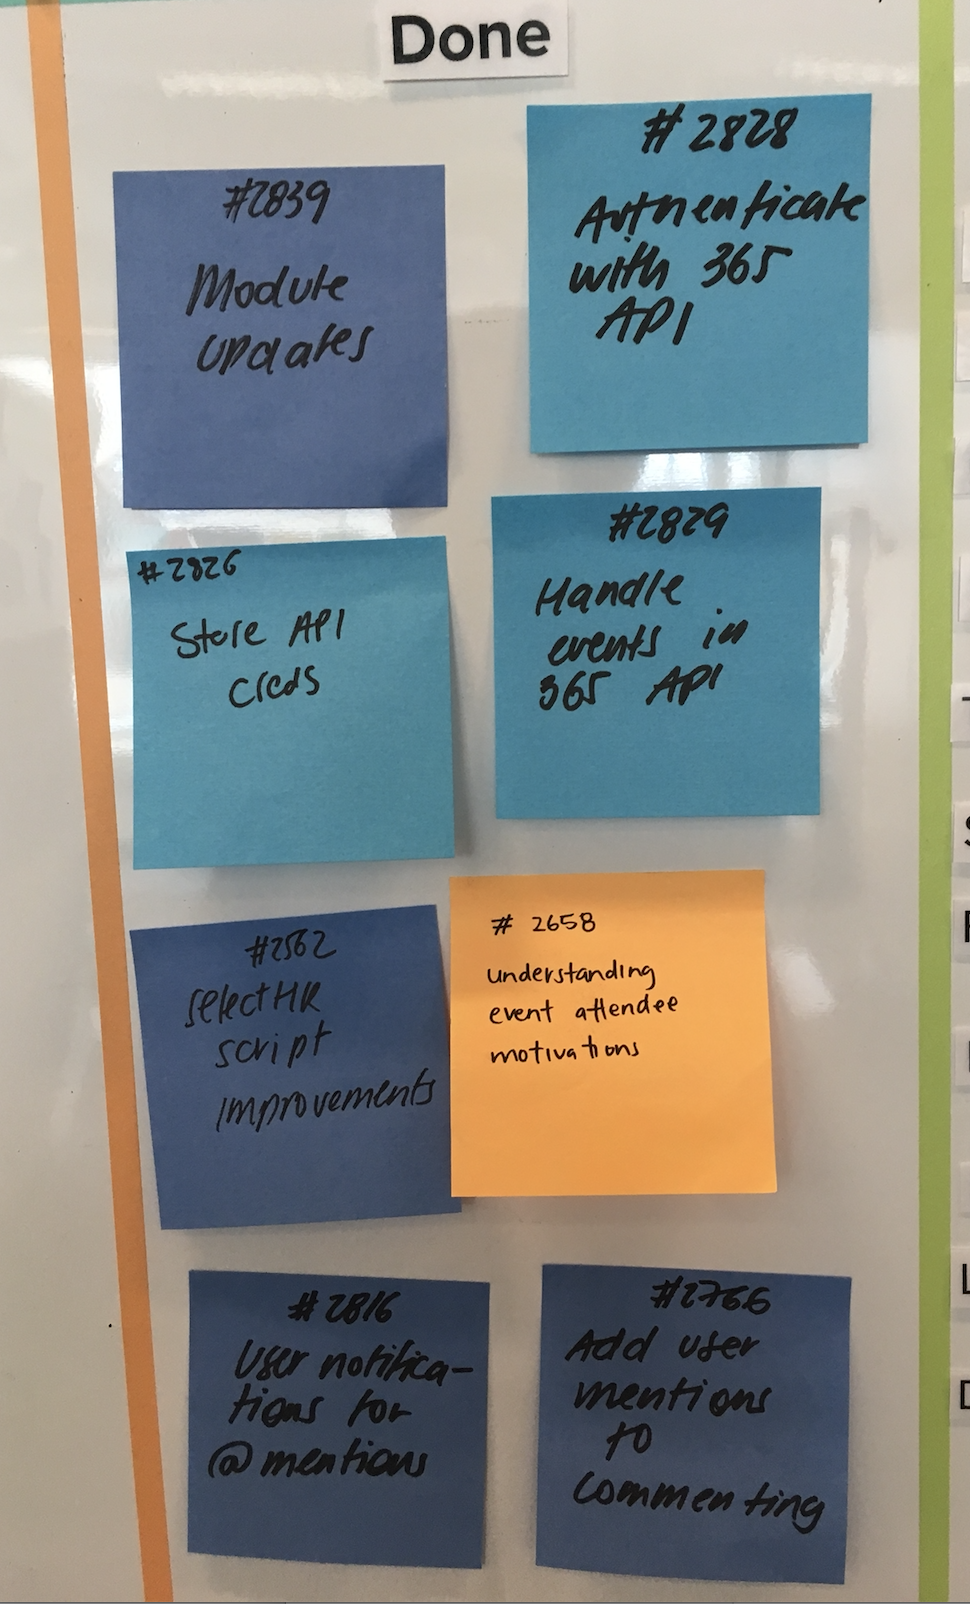 Done
#2839
Module
updates
#2828
Authenticate
with 365
API
#2826
Store API
creds
#2829
Handle
events in
365 API
#2562
selectHR
script
improvements
# 2658
understanding
event attendee
motivations
#2816
User notifica-
tions for
@mentions
#2766
Add user
mentions
to
commenting